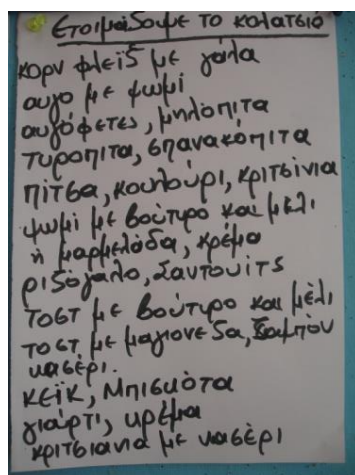 Ετοιμάζουμε το κολατσιό
κορν φλέιξ με γάλα
αυγο με ψωμί
αυγόφετες, μηλόπιτα
τυροπιτα, σπανακόπιτα
πίτσα, κουλούρι, κριτσίνια
ψωμί με βούτυρο και μέλι
ή μαρμελάδα, κρέμα
ριζόγαλο, Σαντουιτς
τοστ με βούτυρο και μέλι
τοστ με μαγιονεζα, ζαμπόν
κασέρι.
κέικ, Μπισκότα
γιαούρτι, κρέμα
κριτσιανια με κασέρι